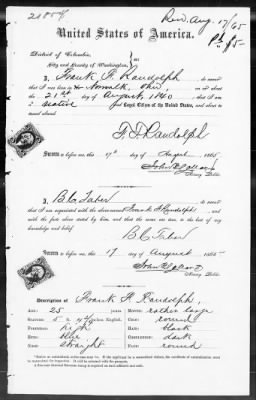 21857
Recd. Aug. 17/65
United States of America.
District of Columbia,
City and County of Washington,
I, Frank F. Randolph, do swear
that I was born in Norwalk, Ohio, on
the 21st day of August, 1840, that I am
a native and Loyal Citizen of the United States, and about to
travel abroad.
F. F. Randolph
Sworn to before me, this 17th day of August 1865
Notary Public.
I, B. C. Taber, do swear
that I am acquainted with the above named Frank F. Randolph, and
with the facts above stated by him, and that the same are true, to the best of my
knowledge and belief.
B. C. Taber
Sworn to before me, this 17 day of August 1865
Notary Public.
Description of Frank F. Randolph,
Age: 25 years. Mouth: rather large
Stature: 5 ft. inches, English. Chin: round
Forehead: high Hair: black
Eyes: blue Complexion: dark
Nose: straight Face: round